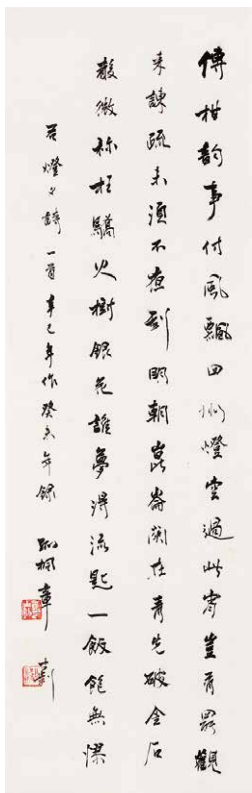 傳柑韵事付風飄四燈雲過此宵豈有罷觀
来諫疏未須不夜到明朝崑崙關在青先破金石
微称狂驕火樹銀花誰夢得流匙一飯飽無憀
燈夕詩一首辛巳年作癸年録孤桐章士釗